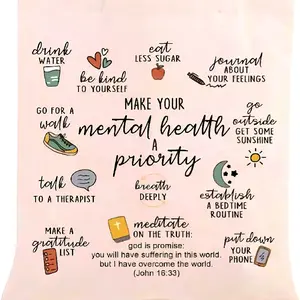 drink
WATER
be kind
TO YOURSELF
eat
LESS SUGAR
journal
ABOUT
YOUR FEELINGS
GO FOR A
walk
MAKE YOUR
mental health
A
priority
go
outside
GET SOME
SUNSHINE
talk
TO A THERAPIST
breath
DEEPLY
establish
A BEDTIME
ROUTINE
MAKE A
gratitude
LIST
meditate
ON THE TRUTH:
god is promise:
you will have suffering in this world.
but I have overcome the world.
(John 16:33)
put down
YOUR
PHONE